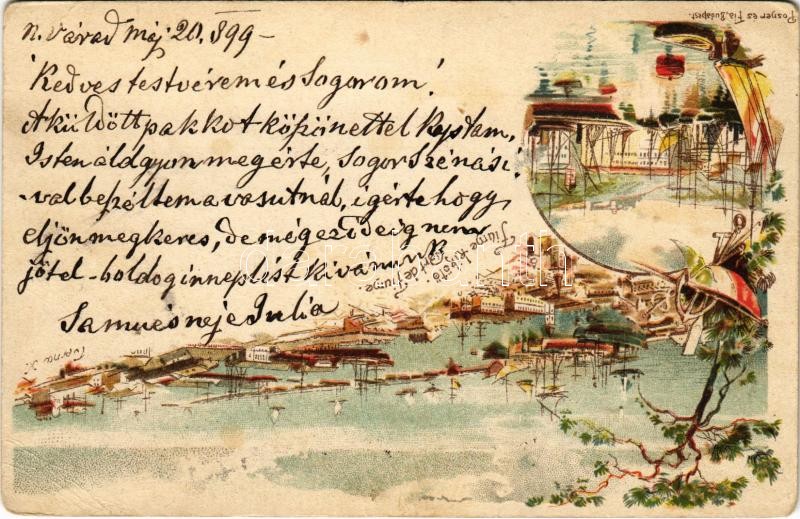 N. Várad máj 20. 899 -
Kedves testvérem és Sogorom!
A küldött pakkot köszönettel kaptam,
Isten áldgyon meg érte, Sogor Szénási
-val beszéltem a vasutnál, igérte hogy
eljön megkeres, de még ez ideig nem
jötel - boldog innneplést kivánunk
Samu és neje Julia
Posner és Fia, Budapest.
Fiume - Kikötő
Port de Fiume